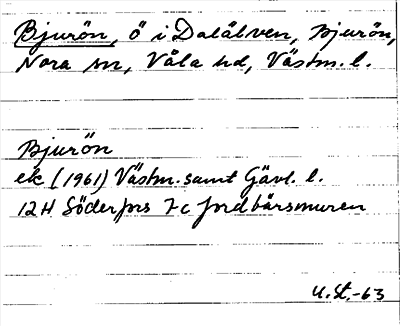 Bjurön, ö i Dalälven, Bjurön,
Nora sn, Våla hd, Västm. l.
Bjurön
ek (1961) Västm. samt Gävl. l.
12H Söderfors 7c Jordbärsmuren
U.St.-63